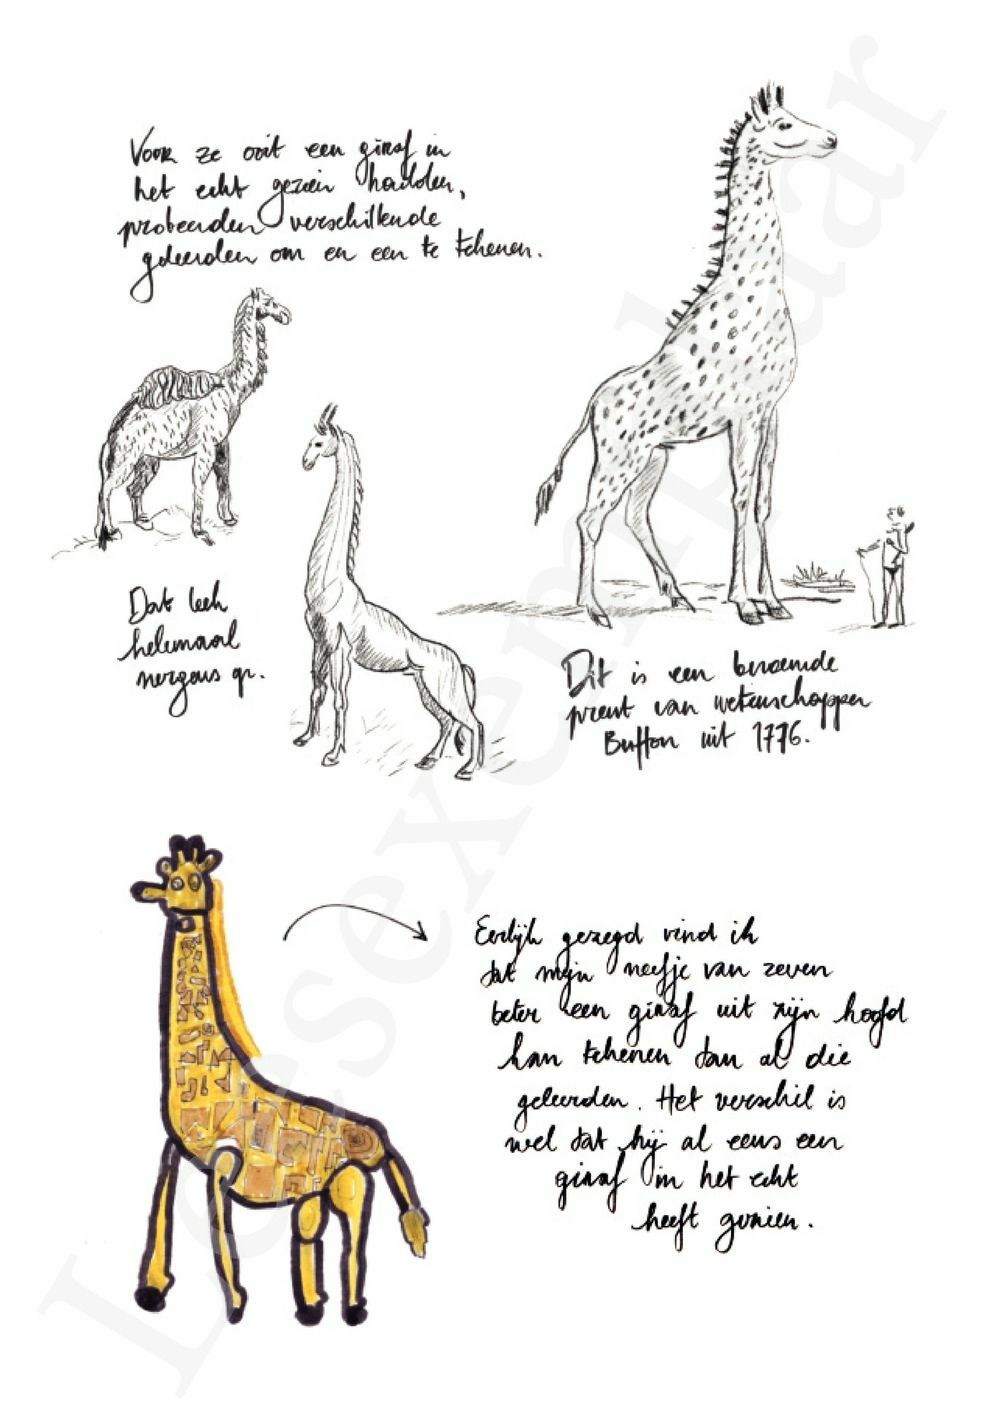 Voor ze ooit een giraf in
het echt gezien hadden,
probeerden verschillende
geleerden om er een te tekenen.
Dat leek
helemaal
nergens op.
Dit is een beroemde
prent van wetenschapper
Buffon uit 1776.
Eerlijk gezegd vind ik
dat mijn neefje van zeven
beter een giraf uit zijn hoofd
kan tekenen dan al die
geleerden. Het verschil is
wel dat hij al eens een
giraf in het echt
heeft gezien.
Leesexemplaar